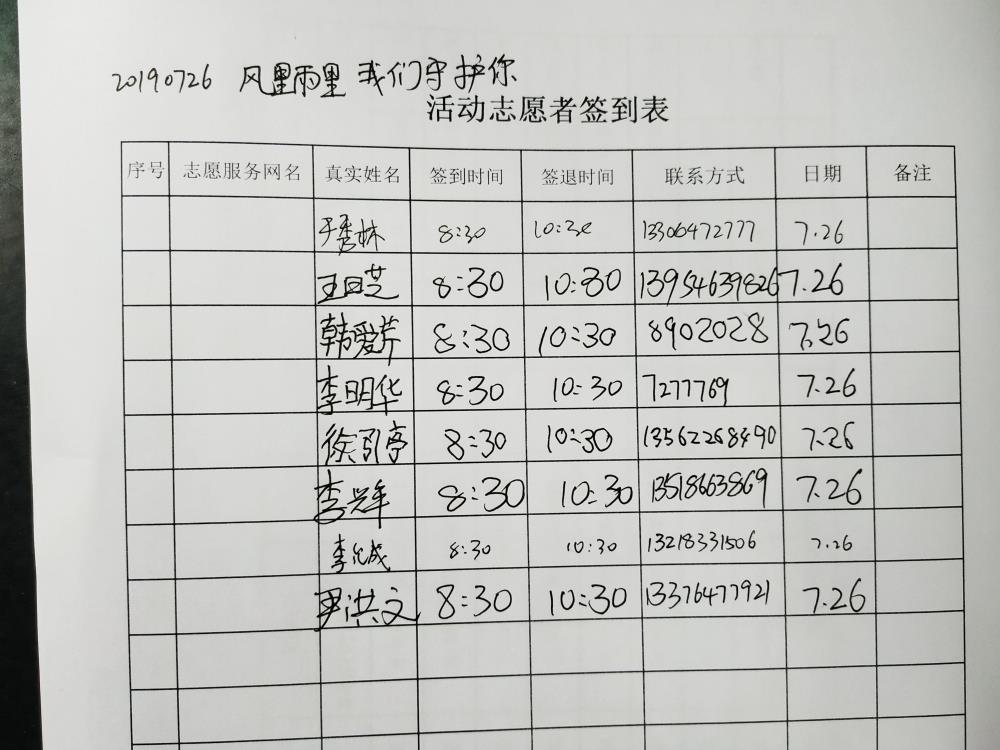 20190726 风里雨里 我们守护你
活动志愿者签到表
序号 志愿服务网名 真实姓名 签到时间 签退时间 联系方式 日期 备注
于秀林 8:30 10:30 13306472777 7.26
王日芝 8:30 10:30 13954639826 7.26
韩爱芹 8:30 10:30 8902028 7.26
李明华 8:30 10:30 7277769 7.26
徐引亭 8:30 10:30 13562268490 7.26
李兴军 8:30 10:30 13518663869 7.26
李允成 8:30 10:30 13218331506 7.26
尹洪文 8:30 10:30 13376477921 7.26